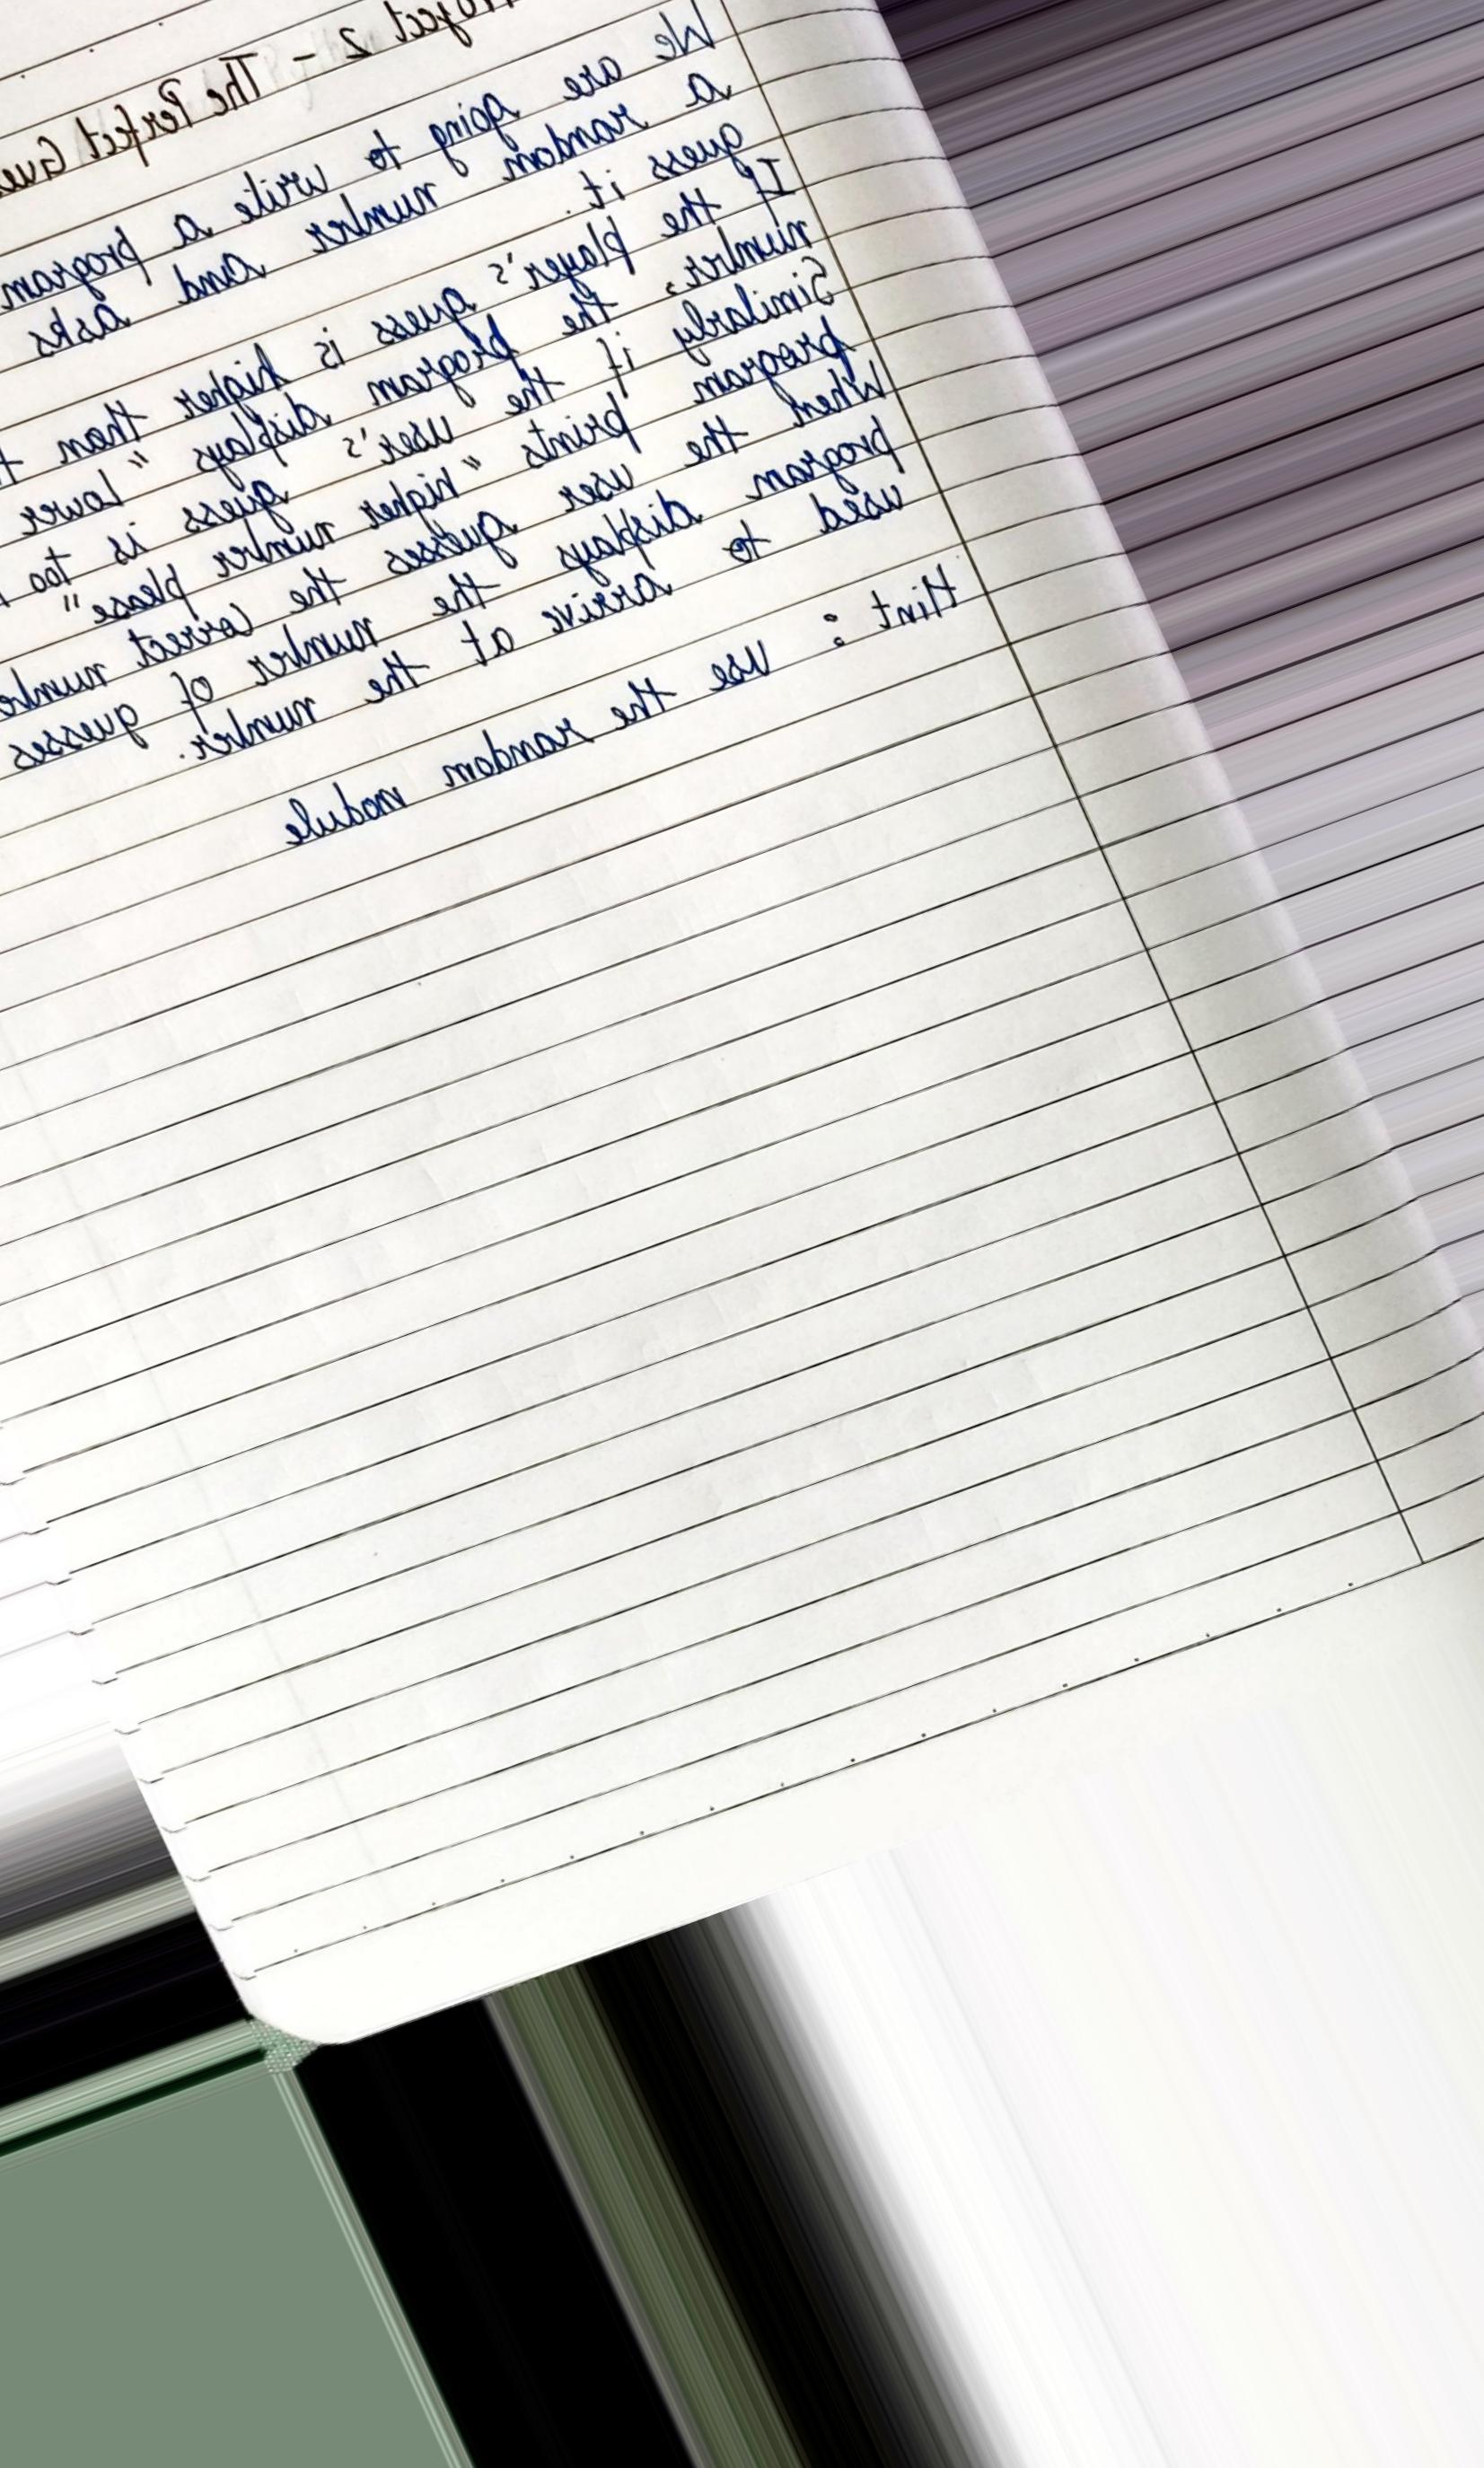 Project 2 - The Perfect
We are going to write a program
a random number and asks
guess it.
If the player's guess is higher than
number, the program displays "Lower
Similarly if the user's guess is too
program prints "higher number please"
When the user guesses the correct
program displays the number of guesses
used to arrive at the number.
Hint : Use the random module